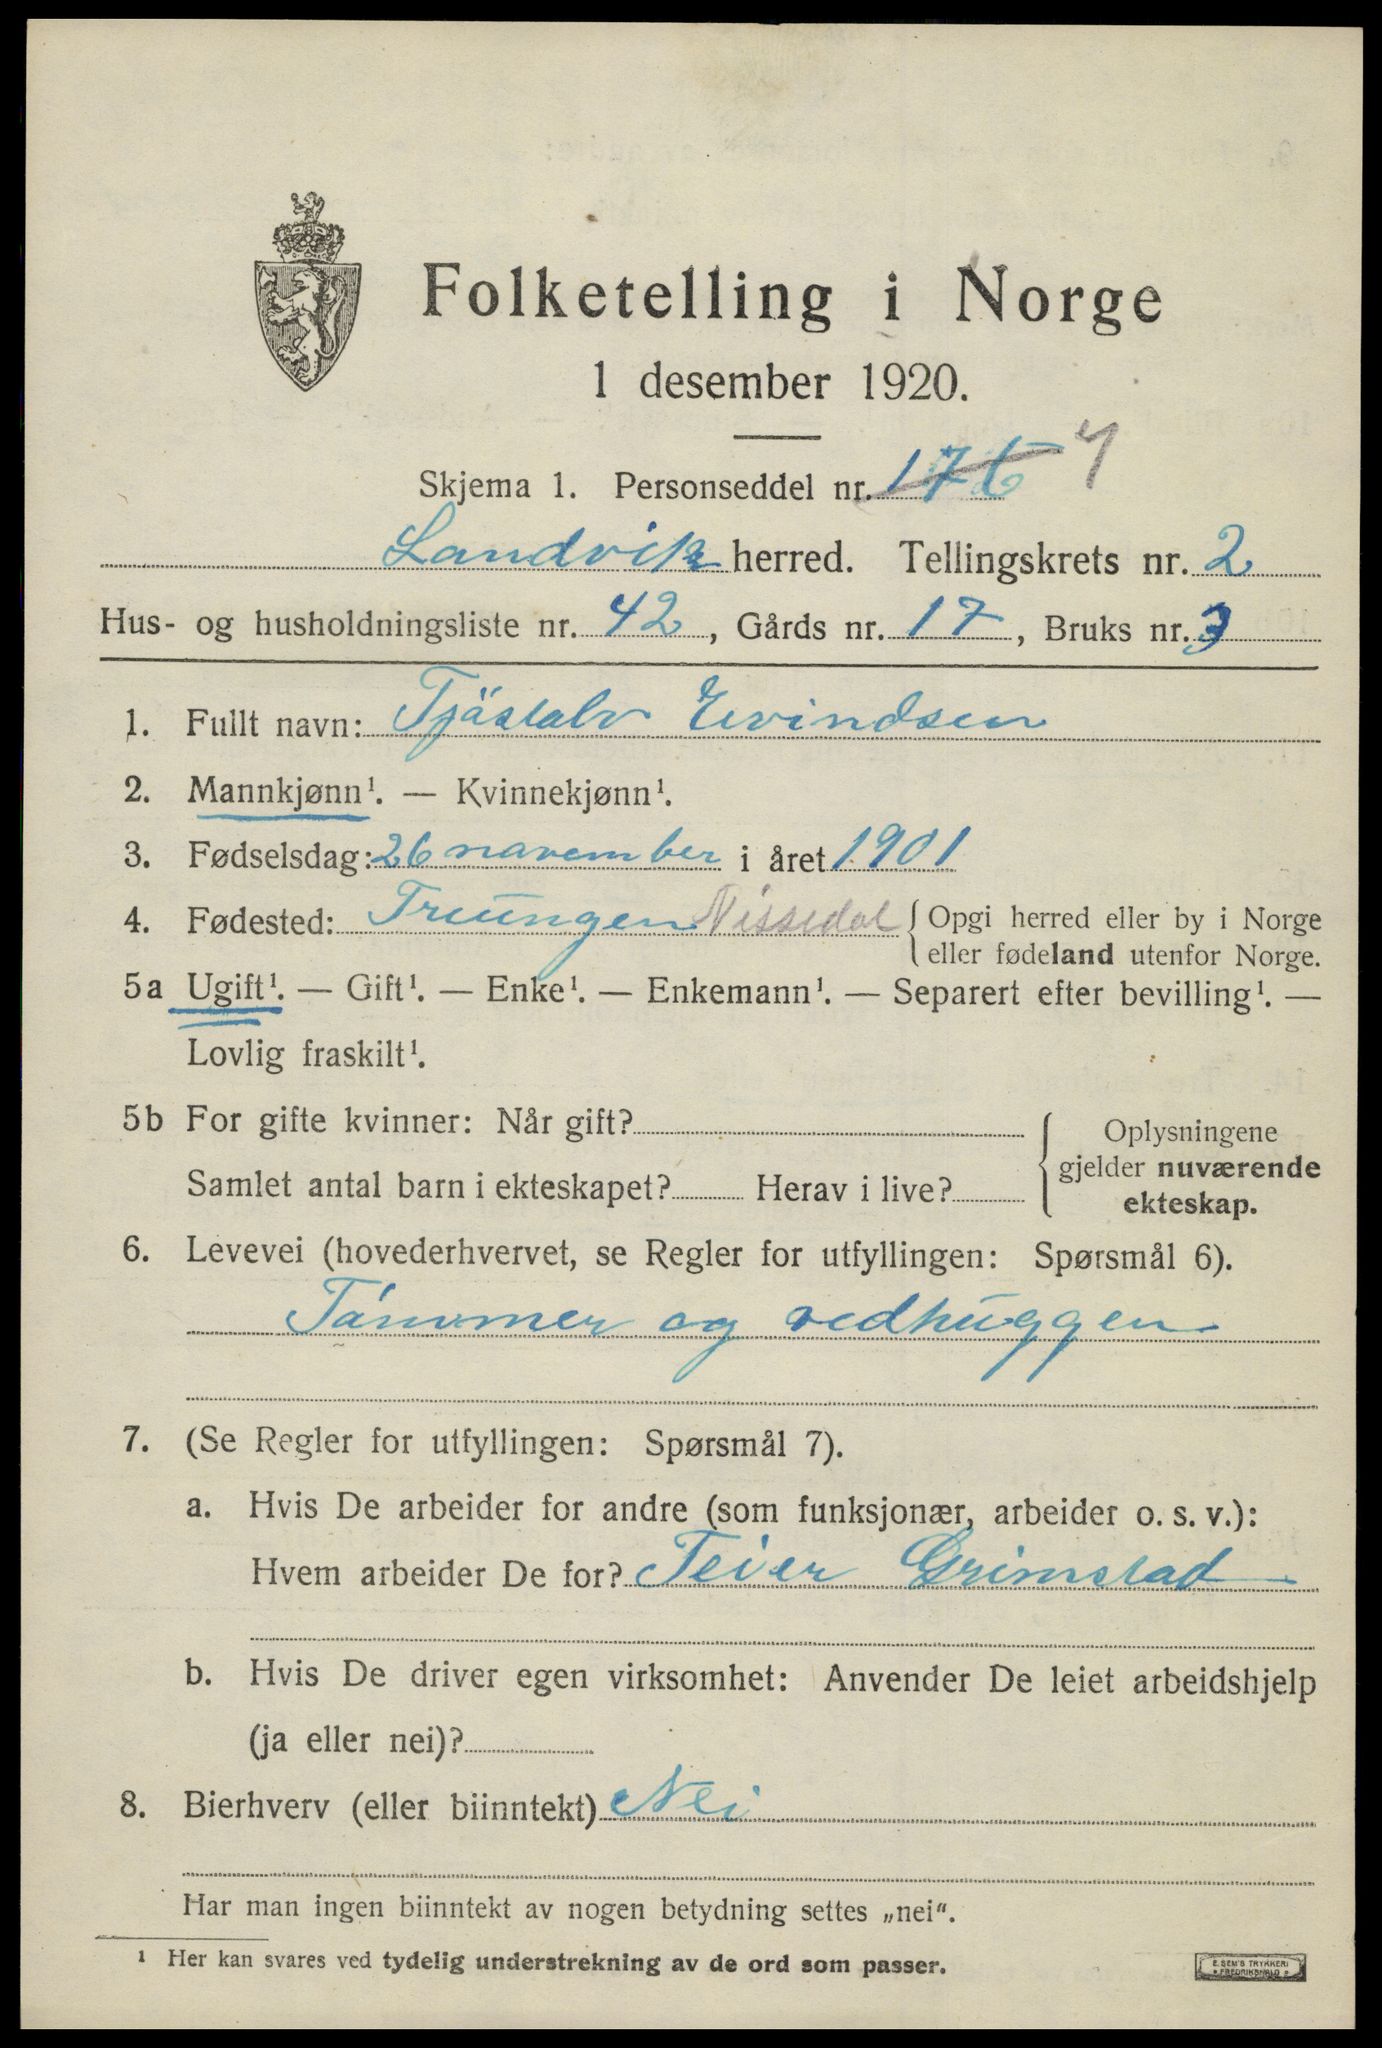 Folketelling i Norge
1 desember 1920.
Skjema 1. Personseddel nr. 176 4
Landvik herred. Tellingskrets nr. 2
Hus- og husholdningsliste nr. 42, Gårds nr. 17, Bruks nr. 3
1. Fullt navn: Tjöstalv Eivindsen
2. Mannkjønn¹. — Kvinnekjønn¹.
3. Fødselsdag: 26 november i året 1901
4. Fødested: Treungen Nissedal { Opgi herred eller by i Norge
eller fødeland utenfor Norge.
5a Ugift¹. — Gift¹. — Enke¹. — Enkemann¹. — Separert efter bevilling¹. —
Lovlig fraskilt¹.
5b For gifte kvinner: Når gift?
Samlet antal barn i ekteskapet? Herav i live?
Oplysningene
gjelder nuværende
ekteskap.
6. Levevei (hovederhvervet, se Regler for utfyllingen: Spørsmål 6).
Tømmer og vedhuggen
7. (Se Regler for utfyllingen: Spørsmål 7).
a. Hvis De arbeider for andre (som funksjonær, arbeider o. s. v.):
Hvem arbeider De for? Teier Grimstad
b. Hvis De driver egen virksomhet: Anvender De leiet arbeidshjelp
(ja eller nei)?
8. Bierhverv (eller biinntekt) Nei
Har man ingen biinntekt av nogen betydning settes „nei".
¹ Her kan svares ved tydelig understrekning av de ord som passer.
E. SEM'S TRYKKERI
FREDRIKSHALD